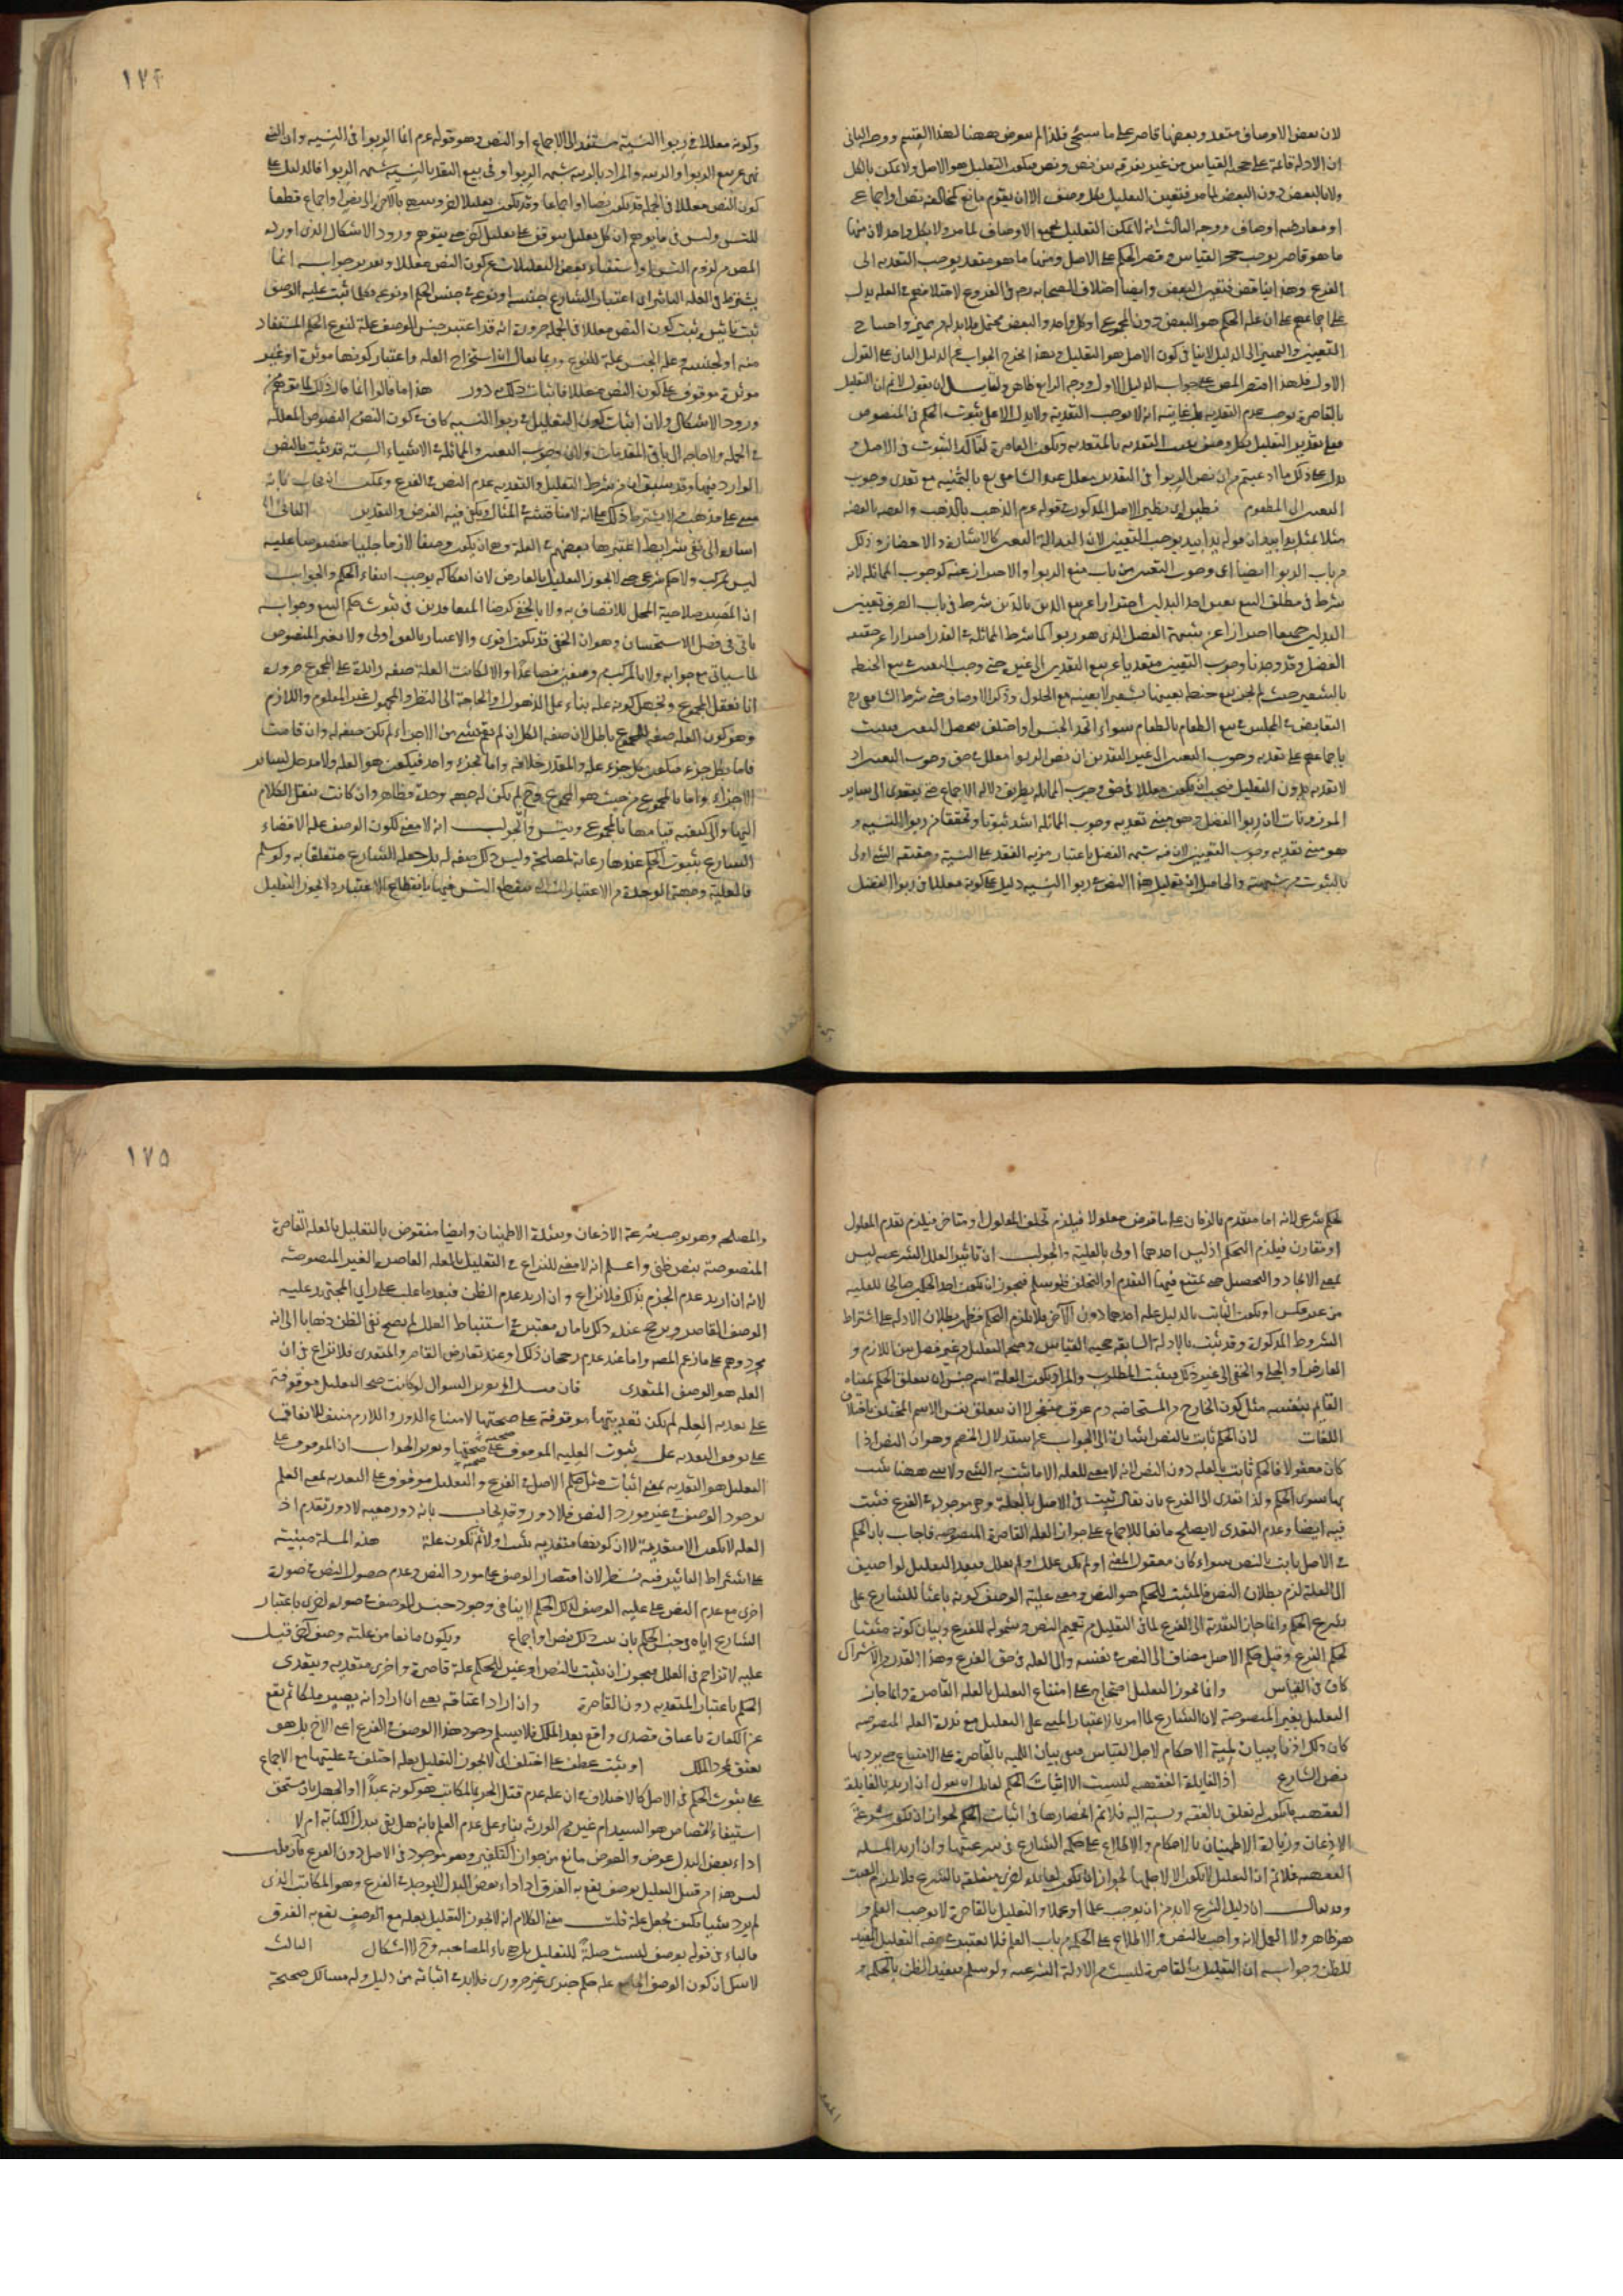 لان بعض الاوصاف متعد وبعضها قاصر على ما سيجئ فلذا لم يتعرض ههنا لهذا القسم ووجه الثانى
ان الادلة قائمة على حجية القياس من غير تفرقة بين نص ونص فيكون التعليل هو الاصل ولا يمكن بالكل
ولا بالبعض دون البعض لما مر فتعين التعليل بكل وصف الا ان يقوم مانع كمخالفة نص او اجماع
او معارضة اوصاف ووجه الثالث انه لا يمكن التعليل بجميع الاوصاف لما مر ولا بكل واحد لان منها
ما هو قاصر يوجب حجر القياس وقصر الحكم على الاصل ومنها ما هو متعد يوجب التعدية الى
الفرع وهذا تناقض فتعين البعض وايضا اختلاف الصحابة رضى فى الفروع لاختلافهم فى العلة يدل
على اجماعهم على ان علة الحكم هو البعض دون المجموع او كل واحد والبعض محتمل فلا بد له من مميز واحتياج
التعيين والتمييز الى الدليل لا ينافى كون الاصل هو التعليل وبهذا يخرج الجواب عن الدليل الثانى على القول
الاول فلهذا اقتصر المص على جواب الدليل الاول ووجه الرابع ظاهر ولقايل ان يقول لا نم ان التعليل
بالقاصرة يوجب عدم التعدية بل غايته انه لا يوجب التعدية ولا يدل الا على ثبوت الحكم فى المنصوص
فعلى تقدير التعليل بكل وصف يثبت التعدية بالمتعدية وتكون القاصرة لتاكد الثبوت فى الاصل و
يدل على ذلك ما ادعيتم من ان نص الربوا فى النقدين معلل عند الشافعى رح بالثمنية مع تعدى وجوب
التعيين الى المطعوم
مثلا بمثل يدا بيد ان قوله يدا بيد يوجب التعيين لان اليد الة التعيين كالاشارة والاحضار وذلك
من باب الربوا ايضا اى وجوب التعيين من باب منع الربوا والاحتراز عنه كوجوب المماثلة لانه
شرط فى مطلق البيع تعيين احد البدلين احترازا عن بيع الدين بالدين وشرط فى باب الصرف تعيين
البدلين جميعا احترازا عن شبهة الفضل الذى هو ربوا كما شرط المماثلة فى القدر احترازا عن حقيقة
الفضل وقد وجدنا وجوب التعيين متعديا عن بيع النقدين الى غيره حتى وجب التعيين فى بيع الحنطة
بالشعير حيث لم يجز بيع حنطة بعينها بشعير لا بعينه مع الحلول وذكر الاوصاف حتى شرط الشافعى رح
التقابض فى المجلس فى بيع الطعام بالطعام سواء اتحد الجنس او اختلف ليحصل التعيين فيثبت
باجماعهم على تعدية وجوب التعيين الى غير النقدين ان نص الربوا معلل فى حق وجوب التعيين اذ
لا تعدية بدون التعليل فيجب ان يكون معللا فى حق وجوب المماثلة بطريق دلالة الاجماع حتى يتعدى الى سائر
الموزونات لان ربوا الفضل فى حق معنى تعدية وجوب المماثلة اشد ثبوتا وتحققا من ربوا النسية و
هو معنى تعدية وجوب التعيين لان فيه شبهة الفضل باعتبار مزية النقد على النسية وحقيقة الشئ اولى
بالثبوت من شبهته والحاصل ان تعليل هذا النص فى ربوا النسيه دليل على كونه معللا فى ربوا الفضل
١٧٤
وكونه معللا فى ربوا النسية مستند الى الاجماع او النص وهو قوله عم انما الربوا فى النسية وان النبى
نهى عن بيع الربوا والريبة والمراد بالريبة شبهة الربوا وفى بيع النقد بالنسية شبهة الربوا فالدليل على
كون النص معللا فى الجملة قد يكون نصا او اجماعا وقد يكون تعليلا اخر وينتهى بالآخرة الى نص او اجماع قطعا
للتس وليس فى ما يوهم ان كل تعليل يتوقف على تعليل اخر حتى يتوهم ورود الاشكال الذى اورده
المص من لزوم التس او استغناء بعض التعليلات عن كون النص معللا وتقرير جوابه انما
يشترط فى العلة التاثير اى اعتبار الشارع جنسه او نوعه فى جنس الحكم او نوعه فكلما ثبت علية الوصف
ثبت تاثيره وثبت كون النص معللا فى الجملة ضرورة انه قد اعتبر جنس الوصف علة لنوع الحكم المستفاد
منه او لجنسه وعلة الجنس علة للنوع وربما يقال ان استخراج العلة واعتبار كونها مؤثرة او غير
مؤثرة موقوف على كون النص معللا فاثبات ذلك به دور هذا ما قالوا انما قال ذلك
ورود الاشكال ولان اثبات كون التعليل فى ربوا النسيه كاف فى كون النص من النصوص المعللة
فى الجملة ولا حاجة الى باقى المقدمات ولان وجوب التعيين والمماثلة فى الاشياء الستة قد يثبت بالنص
الوارد فيها وقد سبق ان من شرط التعليل والتعدية عدم النص فى الفرع ويمكن ان يجاب بانه
مبنى على مذهب من لا يشترط ذلك على انه لا مناقشة فى المثال ويكفى فيه الفرض والتقدير الثانى
اشارة الى نفى شرايط اعتبرها بعضهم فى العلة وهى ان يكون وصفا لازما جليا منصوصا عليه
ليس بمركب ولا حكم شرعى حتى لا يجوز التعليل بالعارض لان انفكاكه يوجب انتفاء الحكم والجواب
ان المعتبر صلاحية المحل للاتصاف به ولا بالخفى كرضا المتعاقدين فى ثبوت حكم البيع وجوابه
ياتى فى فصل الاستحسان وهو ان الخفى قد يكون اقوى والاعتبار بالقوى اولى ولا بغير المنصوص
لما سياتى مع جوابه ولا بالمركب من وصفين فصاعدا والا لكانت العلة صفة زائدة على المجموع ضرورة
انا نعقل المجموع ونجهل كونه علة بناء على الذهول او الحاجة الى النظر والمجهول غير المعلوم واللازم
وهو كون العلة صفة المجموع باطل لان صفة الكل ان لم تقم بشئ من الاجزاء لم تكن صفة له وان قامت
فاما بكل جزء فيكون كل جزء علة والمقدر خلافه واما بجزء واحد فيكون هو العلة ولا مدخل لسائر
الاجزاء واما بالمجموع من حيث هو المجموع وح لم يكن له جهة وحدة فظاهر وان كانت ينقل الكلام
اليها والى كيفية قيامها بالمجموع ويتس والجواب انه لا معنى لكون الوصف علة الا قضاء
الشارع بثبوت الحكم عندها رعاية لمصلحة وليس ذلك صفة له بل جعله الشارع متعلقا به ولو سلم
فالعلية وجهة الوحدة من الاعتباريات فينقطع التس فيهما بانقطاع الاعتبار ولا يجوز التعليل
لحكم شرعى لانه اما متقدم بالزمان على ما فرض معلولا فيلزم تخلف المعلول او متاخر فيلزم تقدم المعلول
او مقارن فيلزم التحكم اذ ليس احدهما اولى بالعلية والجواب ان تاثير العلل الشرعيه ليس
بمعنى الايجاد والتحصيل حتى يمتنع فيها التقدم او التخلف ولو سلم فيجوز ان يكون احد الحكمين صالحا للعلية
من غير عكس او يكون الثابت بالدليل علية احدهما دون الآخر فلا يلزم التحكم فظهر بطلان الادلة على اشتراط
الشروط المذكورة وقد ثبت بالادلة السابقة حجية القياس وصحة التعليل من غير فصل بين اللازم و
العارض او الجلى والخفى الى غير ذلك فيثبت المطلوب والمراد بكون العلة اسم جنس ان يتعلق الحكم بمعناه
القائم بنفسه مثل كون الخارج من المستحاضة دم عرق منفجر لا ان يتعلق بنفس الاسم المختلف باختلاف
اللغات لان الحكم ثابت بالنص اشارة الى الجواب عن استدلال الخصم وهو ان النص اذا
كان معقولا فالحكم ثابت بالعلة دون النص لانه لا معنى للعلة الا ما يثبت به الشئ ولا شئ ههنا يثبت
بها سوى الحكم ولذا تعدى الى الفرع بان يقال ثبت فى الاصل بالعلة وهى موجودة فى الفرع فيثبت
فيه ايضا وعدم التعدى لا يصلح مانعا للاجماع على جواز العلة القاصرة المنصوصة فاجاب بان الحكم
فى الاصل ثابت بالنص سواء كان معقول المعنى او لم يكن علل او لم يعلل فبعد التعليل لو اضيف
الى العلة لزم بطلان النص فالمثبت للحكم هو النص ومعنى علية الوصف كونه باعثا للشارع على
شرع الحكم وانما جاز التعدية الى الفرع لما فى التعليل من تعميم النص وشموله للفرع وبيان كونه مثبتا
لحكم الفرع وقيل حكم الاصل مضاف الى النص فى نفسه والى العلة فى حق الفرع وهذا القدر من الاشتراك
كاف فى القياس وانما يجوز التعليل احتجاج على امتناع التعليل بالعلة القاصرة وانما جاز
التعليل بغير المنصوصة لان الشارع لما امر بالاعتبار المبنى على التعليل مع ندرة العلة المنصوصة
كان ذلك اذنا ببيان لمية الاحكام لاجل القياس فبقى بيان اللمية بالقاصرة على الامتناع حتى يرد بها
نص الشارع اذ الفايدة الفقهية ليست الا اثبات الحكم لقائل ان يقول ان اريد بالفايدة
الفقهيه ما يكون له تعلق بالفقه ونسبة اليه فلا نم انحصارها فى اثبات الحكم لجواز ان تكون سرعة
الاذعان وزيادة الاطمينان بالاحكام والاطلاع على حكمة الشارع فى شرعيتها وان اريد المسلة
الفقهيه فلا نم ان التعليل لا يكون الا لاجلها لجواز ان يكون لفائدة اخرى متعلقة بالشرع فلا يلزم العبث
وقد يقال ان دليل الشرع لا بد من ان يوجب علما او عملا والتعليل بالقاصرة لا يوجب العلم و
هو ظاهر ولا العمل لانه واجب بالنص والاطلاع على الحكم من باب العلم فلا يعتبر فى حقه التعليل المفيد
للظن وجوابه ان التعليل بالقاصرة ليس من الادلة الشرعيه ولو سلم فيفيد الظن بالحكمة و
١٧٥
والمصلحة وهو يوجب سرعة الاذعان وشدة الاطمينان وايضا منقوض بالتعليل بالعلة القاصرة
المنصوصة بنص ظنى واعلم انه لا معنى للنزاع فى التعليل بالعلة القاصرة الغير المنصوصة
لانه ان اريد عدم الجزم بذلك فلا نزاع وان اريد عدم الظن فبعد ما غلب على راى المجتهد علية
الوصف القاصر وترجح عنده ذلك بامارة معتبرة فى استنباط العلل لم يصح نفى الظن ذهابا الى انه
مجرد وهم على ما زعم المصه واما عند عدم رجحان ذلك او عند تعارض القاصر والمتعدى فلا نزاع فى ان
العلة هو الوصف المتعدى فان قيل تقرير السوال لو كانت صحة التعليل موقوفة
على تعدية العلة لم تكن تعديتها موقوفة على صحتها لامتناع الدور واللازم منتف للاتفاق
على توقف التعدية على ثبوت العلية الموقوف على صحتها وتقرير الجواب ان الموقوف على
التعليل هو التعدية بمعنى اثبات مثل حكم الاصل فى الفرع والتعليل موقوف على التعدية بمعنى العلم
بوجود الوصف فى غير مورد النص فلا دور وقد يجاب بانه دور معية لا دور تقدم اذ
العلة لا تكون الا متعدية لا ان كونها متعدية يثبت اولا ثم تكون علة هذه المسلة مبنية
على اشتراط التاثير فيه نظر لان اقتصار الوصف على مورد النص وعدم حصول النص فى صورة
اخرى مع عدم النص على علية الوصف لذلك الحكم لا ينافى وجود جنس الوصف فى صورة اخرى باعتبار
الشارع اياه فى جنس الحكم بان ثبت ذلك بنص او اجماع ويكون مانعا من علية وصف اخر قيل
عليه لا تزاحم فى العلل فيجوز ان يثبت بالنص او غيره للحكم علة قاصرة واخرى متعدية ويتعدى
الحكم باعتبار المتعدية دون القاصرة وان اراد اعتاقه يعنى ان اراد انه يصير ملكا ثم يقع
عن الكفارة باعتاق قصدى واقع بعد الملك فلا نسلم وجود هذا الوصف فى الفرع اعنى الاخ بل هو
يعتق بمجرد الملك او يثبت عطف على اختلف اى لا يجوز التعليل بعلة اختلف فى عليتها مع الاجماع
على ثبوت الحكم فى الاصل كالاختلاف فى ان علة عدم قتل الحر بالمكاتب هو كونه عبدا او الجهل بان مستحق
استيفاء القصاص هو السيد ام غيره من الورثة بناء على عدم العلم بانه هل يفى ببدل الكتابة ام لا
اداء بعض البدل عوض والعوض مانع من جواز التكفير وهو موجود فى الاصل دون الفرع فان قلت
ليس هذا من قبيل التعليل بوصف يقع به الفرق اذ اداء بعض البدل لا يوجد فى الفرع وهو المكاتب الذى
لم يرد شيئا فكيف يجعل علة قلت معنى الكلام انه لا يجوز التعليل بعلة مع الوصف يقع به الفرق
فالباء فى قوله بوصف ليست صلة للتعليل بل هى باء المصاحبة وح لا اشكال الثالث
لا شك ان كون الوصف الجامع علة حكم خبرى غير ضرورى فلا بد فى اثباته من دليل وله مسالك صحيحة